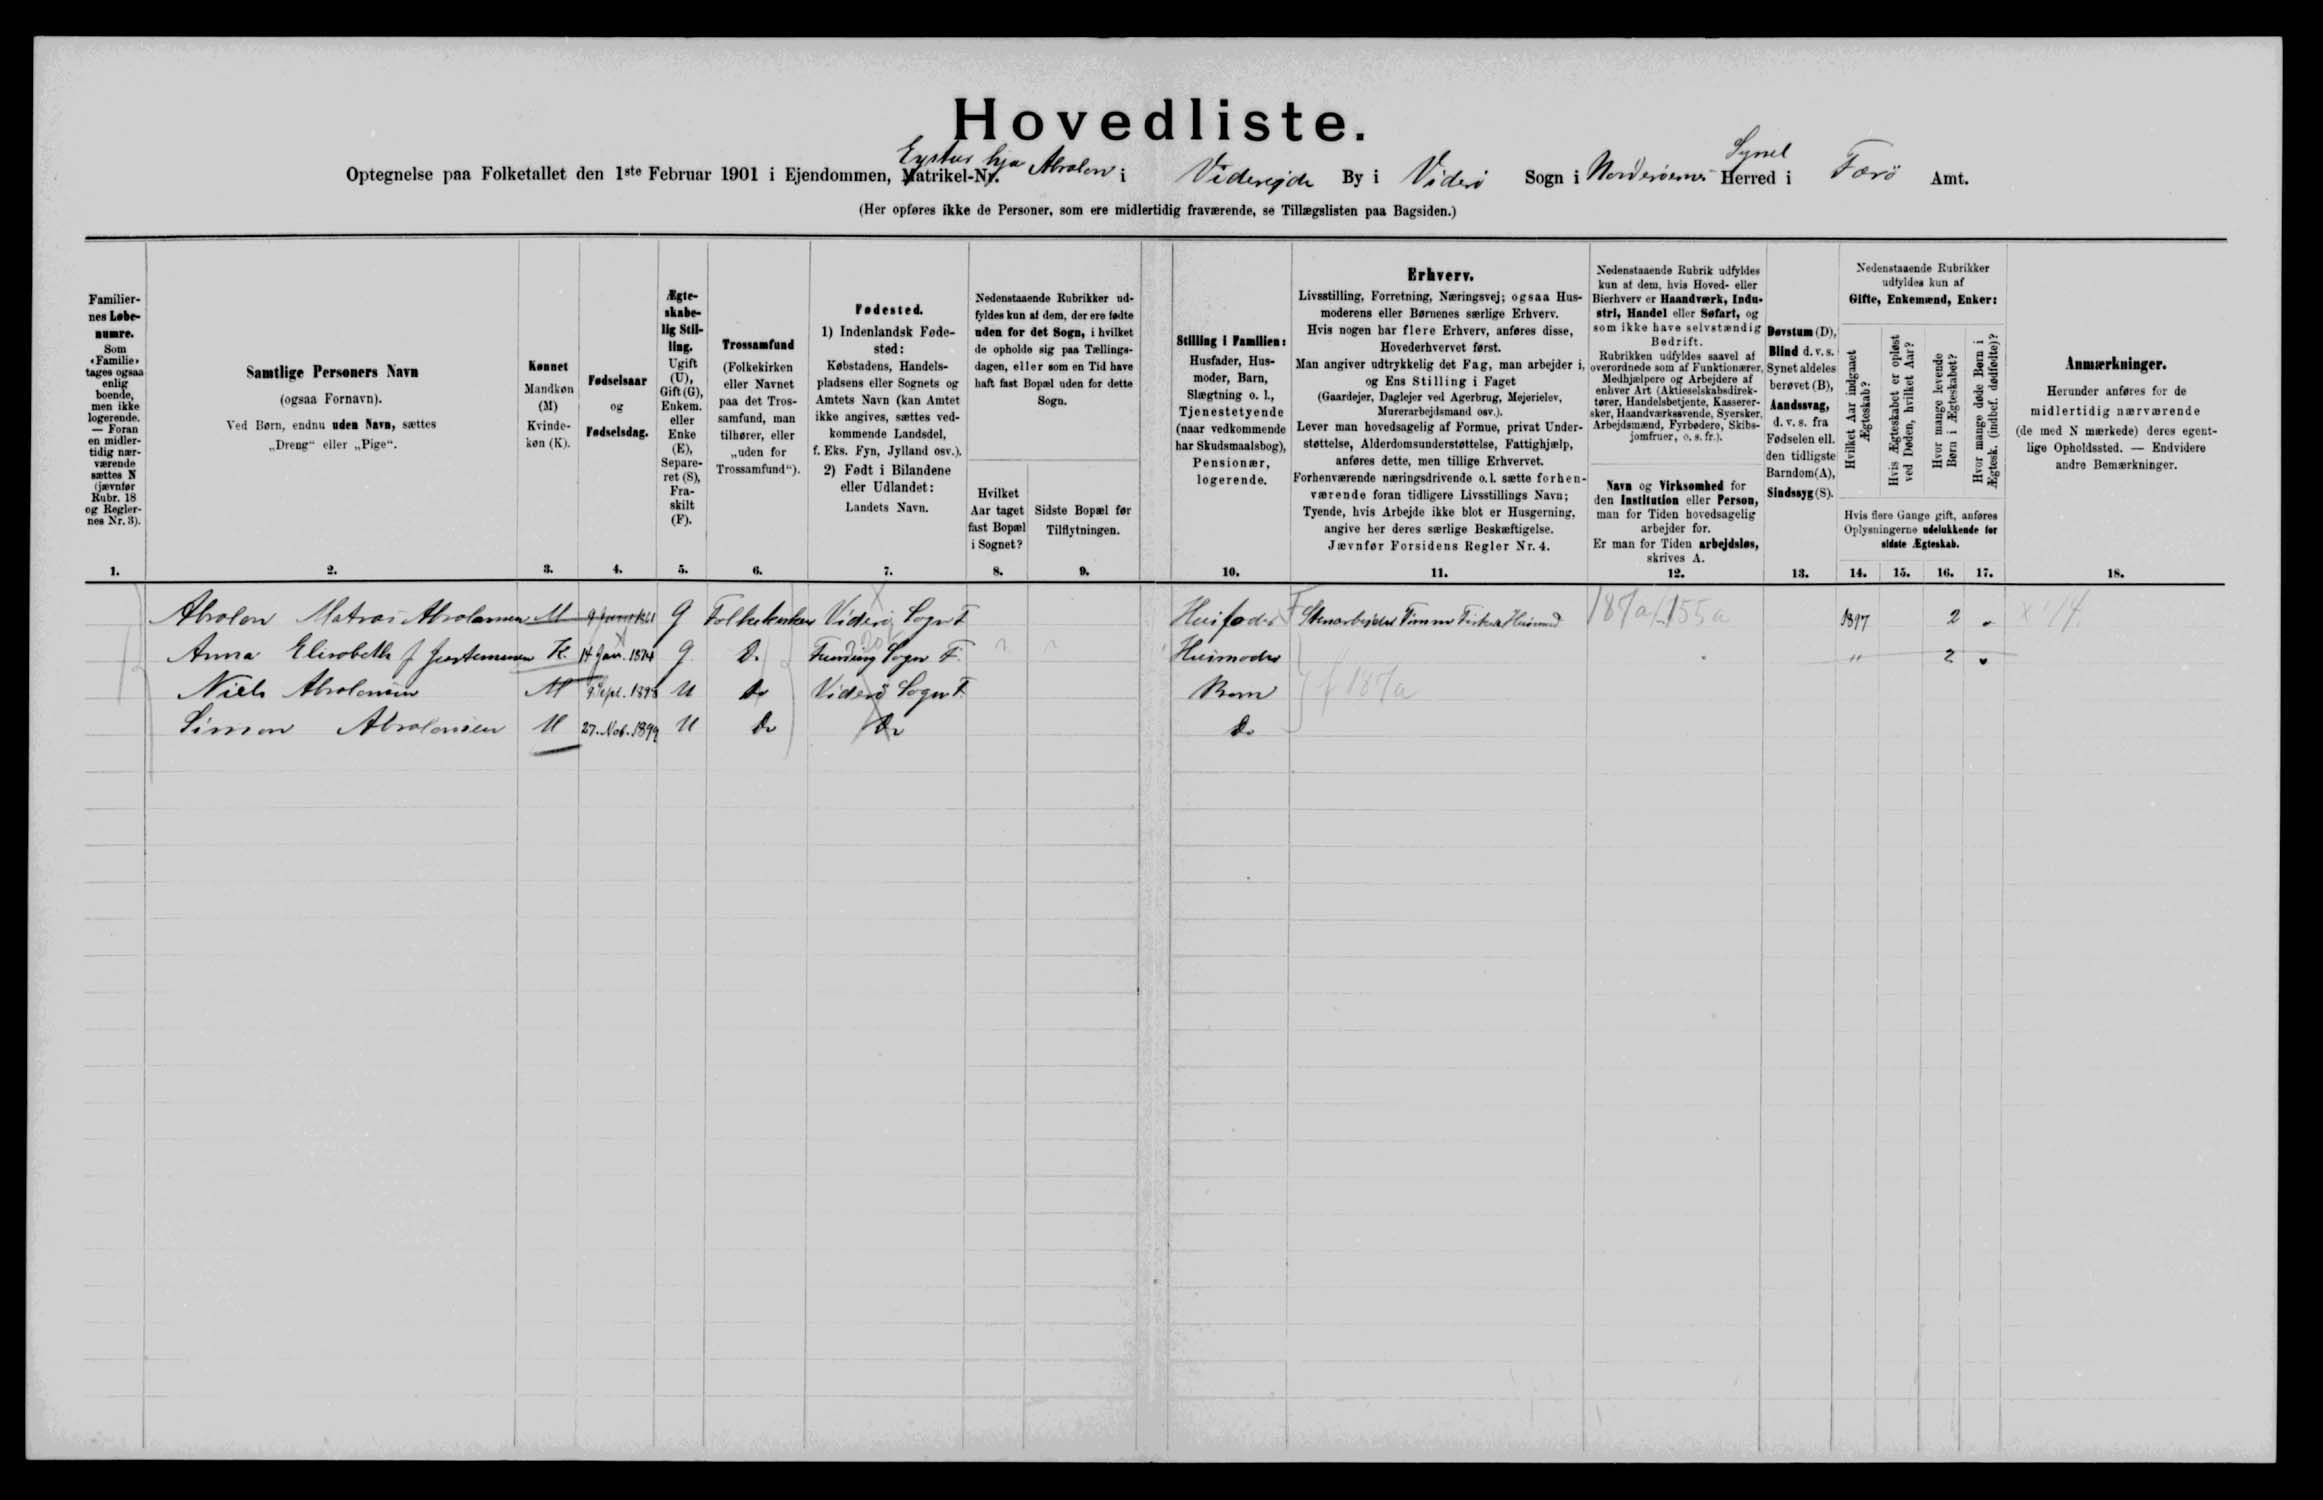 Hovedliste.
Optegnelse paa Folketallet den 1ste Februar 1901 i Ejendommen, Matrikel-Nr. Eystur hja Absalon i Videreide By i Viderö Sogn i Norderöernes Herred Syssel i Færö Amt.
(Her opføres ikke de Personer, som ere midlertidig fraværende, se Tillægslisten paa Bagsiden.)
Familier-
nes Løbe-
numre.
Som
«Familie»
tages ogsaa
enlig
boende,
men ikke
logerende.
— Foran
en midler-
tidig nær-
værende
sættes N
(jævnfør
Rubr. 18
og Regler-
nes Nr. 3).
1.
Samtlige Personers Navn
(ogsaa Fornavn).
Ved Børn, endnu uden Navn, sættes
„Dreng“ eller „Pige“.
2.
Kønnet
Mandkøn
(M)
Kvinde-
køn (K).
3.
Fødselsaar
og
Fødselsdag.
4.
Ægte-
skabe-
lig Stil-
ling.
Ugift
(U),
Gift (G),
Enkem.
eller
Enke
(E),
Separe-
ret (S),
Fra-
skilt
(F).
5.
Trossamfund
(Folkekirken
eller Navnet
paa det Tros-
samfund, man
tilhører, eller
„uden for
Trossamfund“).
6.
Fødested.
1) Indenlandsk Føde-
sted:
Købstadens, Handels-
pladsens eller Sognets og
Amtets Navn (kan Amtet
ikke angives, sættes ved-
kommende Landsdel,
f. Eks. Fyn, Jylland osv.).
2) Født i Bilandene
eller Udlandet:
Landets Navn.
7.
Nedenstaaende Rubrikker ud-
fyldes kun af dem, der ere fødte
uden for det Sogn, i hvilket
de opholde sig paa Tællings-
dagen, eller som en Tid have
haft fast Bopæl uden for dette
Sogn.
Hvilket
Aar taget
fast Bopæl
i Sognet?
8.
Sidste Bopæl før
Tilflytningen.
9.
Stilling i Familien:
Husfader, Hus-
moder, Barn,
Slægtning o. l.,
Tjenestetyende
(naar vedkommende
har Skudsmaalsbog),
Pensionær,
logerende.
10.
Erhverv.
Livsstilling, Forretning, Næringsvej; ogsaa Hus-
moderens eller Børnenes særlige Erhverv.
Hvis nogen har flere Erhverv, anføres disse,
Hovederhvervet først.
Man angiver udtrykkelig det Fag, man arbejder i,
og Ens Stilling i Faget
(Gaardejer, Daglejer ved Agerbrug, Mejerielev,
Murerarbejdsmand osv.).
Lever man hovedsagelig af Formue, privat Under-
støttelse, Alderdomsunderstøttelse, Fattighjælp,
anføres dette, men tillige Erhvervet.
Forhenværende næringsdrivende o. l. sætte forhen-
værende foran tidligere Livsstillings Navn;
Tyende, hvis Arbejde ikke blot er Husgerning,
angive her deres særlige Beskæftigelse.
Jævnfør Forsidens Regler Nr. 4.
11.
Nedenstaaende Rubrik udfyldes
kun af dem, hvis Hoved- eller
Bierhverv er Haandværk, Indu-
stri, Handel eller Søfart, og
som ikke have selvstændig
Bedrift.
Rubrikken udfyldes saavel af
overordnede som af Funktionærer,
Medhjælpere og Arbejdere af
enhver Art (Aktieselskabsdirek-
tører, Handelsbetjente, Kasserer-
sker, Haandværkssvende, Syersker,
Arbejdsmænd, Fyrbødere, Skibs-
jomfruer, o. s. fr.).
Navn og Virksomhed for
den Institution eller Person,
man for Tiden hovedsagelig
arbejder for.
Er man for Tiden arbejdsløs,
skrives A.
12.
Døvstum (D),
Blind d. v. s.
Synet aldeles
berøvet (B),
Aandssvag,
d. v. s. fra
Fødselen ell.
den tidligste
Barndom (A),
Sindssyg (S).
13.
Nedenstaaende Rubrikker
udfyldes kun af
Gifte, Enkemænd, Enker:
Hvilket Aar indgaaet
Ægteskab?
Hvis Ægteskabet er opløst
ved Døden, hvilket Aar?
Hvor mange levende
Børn i Ægteskabet?
Hvor mange døde Børn i
Ægtesk. (indbef. dødfødte)?
Hvis flere Gange gift, anføres
Oplysningerne udelukkende for
sidste Ægteskab.
14. 15. 16. 17.
Anmærkninger.
Herunder anføres for de
midlertidig nærværende
(de med N mærkede) deres egent-
lige Opholdssted. — Endvidere
andre Bemærkninger.
18.
Absalon Matras Absalonsen M G Folkekirken Viderö Sogn F Husfader Stenarbejder Tømrer Fisker Husmand 187a/155a 1897 2 0 x 1/4
Anna Elisabeth f Justinussen K 14 Jan. 1874 G Do Funding Sogn F. Husmoder " 2 0
Niels Absalonsen M U Do Viderö Sogn F Barn f 187a
Simon Absalonsen M 27. Nov. 1899 U Do Do Do